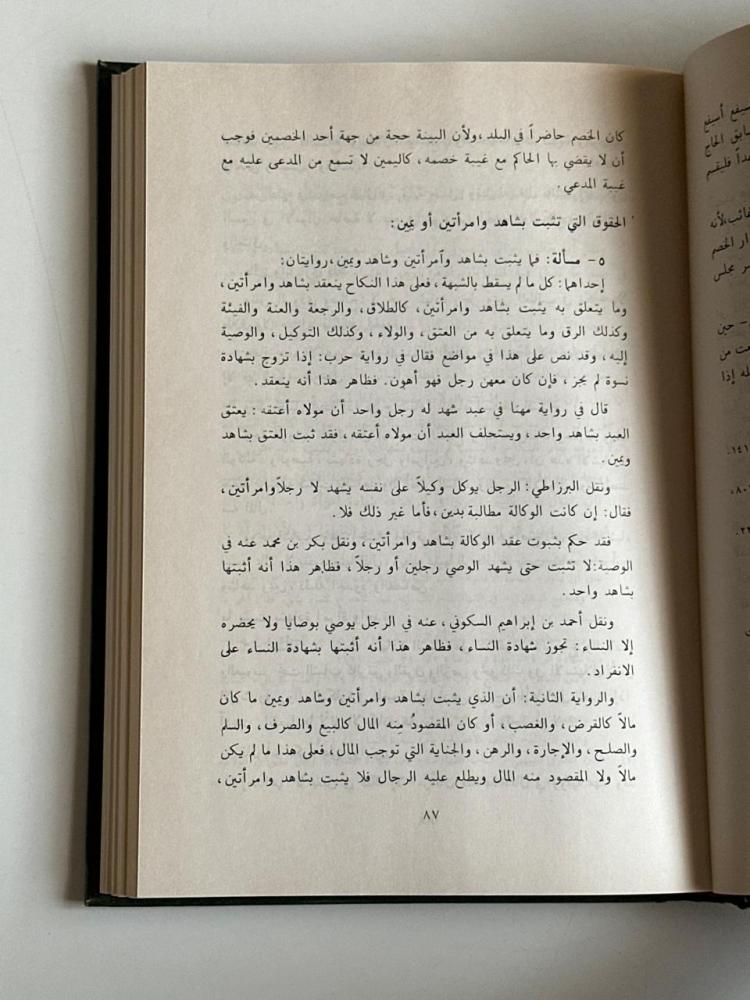 كان الخصم حاضراً في البلد، ولأن البينة حجة من جهة أحد الخصمين فوجب
أن لا يقضي بها الحاكم مع غيبة خصمه، كاليمين لا تسمع من المدعى عليه مع
غيبة المدعي.
الحقوق التي تثبت بشاهد وامرأتين أو يمين:
٥- مسألة: فيما يثبت بشاهد وآمرأتين وشاهد ويمين، روايتان:
إحداهما: كل ما لم يسقط بالشبهة، فعلى هذا النكاح ينعقد بشاهد وامرأتين،
وما يتعلق به يثبت بشاهد وامرأتين، كالطلاق، والرجعة والعنة والفيئة
وكذلك الرق وما يتعلق به من العتق، والولاء، وكذلك التوكيل، والوصية
إليه، وقد نص على هذا في مواضع فقال في رواية حرب: إذا تزوج بشهادة
نسوة لم يجز، فإن كان معهن رجل فهو أهون. فظاهر هذا أنه ينعقد.
قال في رواية مهنا في عبد شهد له رجل واحد أن مولاه أعتقه: يعتق
العبد بشاهد واحد، ويستحلف العبد أن مولاه أعتقه، فقد ثبت العتق بشاهد
ويمين.
ونقل البرزاطي: الرجل يوكل وكيلاً على نفسه يشهد لا رجلاً وامرأتين،
فقال: إن كانت الوكالة مطالبة بدين، فأما غير ذلك فلا.
فقد حكم بثبوت عقد الوكالة بشاهد وامرأتين، ونقل بكر بن محمد عنه في
الوصية: لا تثبت حتى يشهد الوصي رجلين أو رجلاً، فظاهر هذا أنه أثبتها
بشاهد واحد.
ونقل أحمد بن إبراهيم السكوني، عنه في الرجل يوصي بوصايا ولا يحضره
إلا النساء: تجوز شهادة النساء، فظاهر هذا أنه أثبتها بشهادة النساء على
الانفراد.
والرواية الثانية: أن الذي يثبت بشاهد وامرأتين وشاهد ويمين ما كان
مالاً كالقرض، والغصب، أو كان المقصودُ مِنه المال كالبيع والصرف، والسلم
والصلح، والإجارة، والرهن، والجناية التي توجب المال، فعلى هذا ما لم يكن
مالاً ولا المقصود منه المال ويطلع عليه الرجال فلا يثبت بشاهد وامرأتين،
٨٧